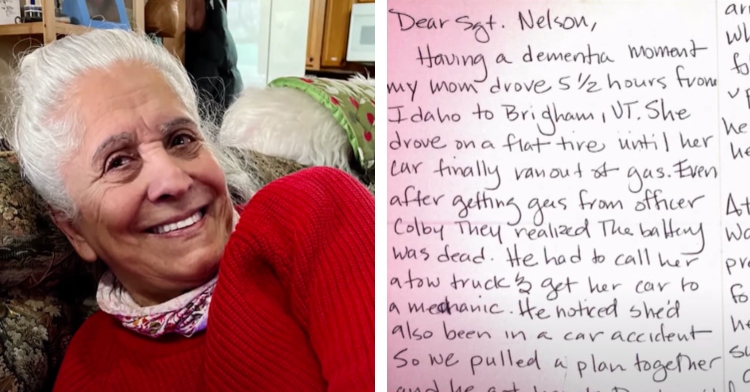 Dear Sgt. Nelson,
Having a dementia moment
my mom drove 5 1/2 hours from
Idaho to Brigham, UT. She
drove on a flat tire until her
car finally ran out of gas. Even
after getting gas from officer
Colby They realized The battery
was dead. He had to call her
a tow truck & get her car to
a mechanic. He noticed she'd
also been in a car accident
So we pulled a plan together
and he got